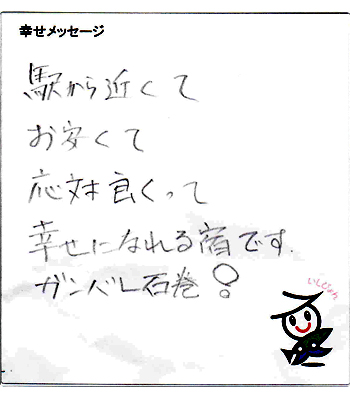 幸せメッセージ
駅から近くて
お安くて
応対良くって
幸せになれる宿です.
ガンバレ石巻!